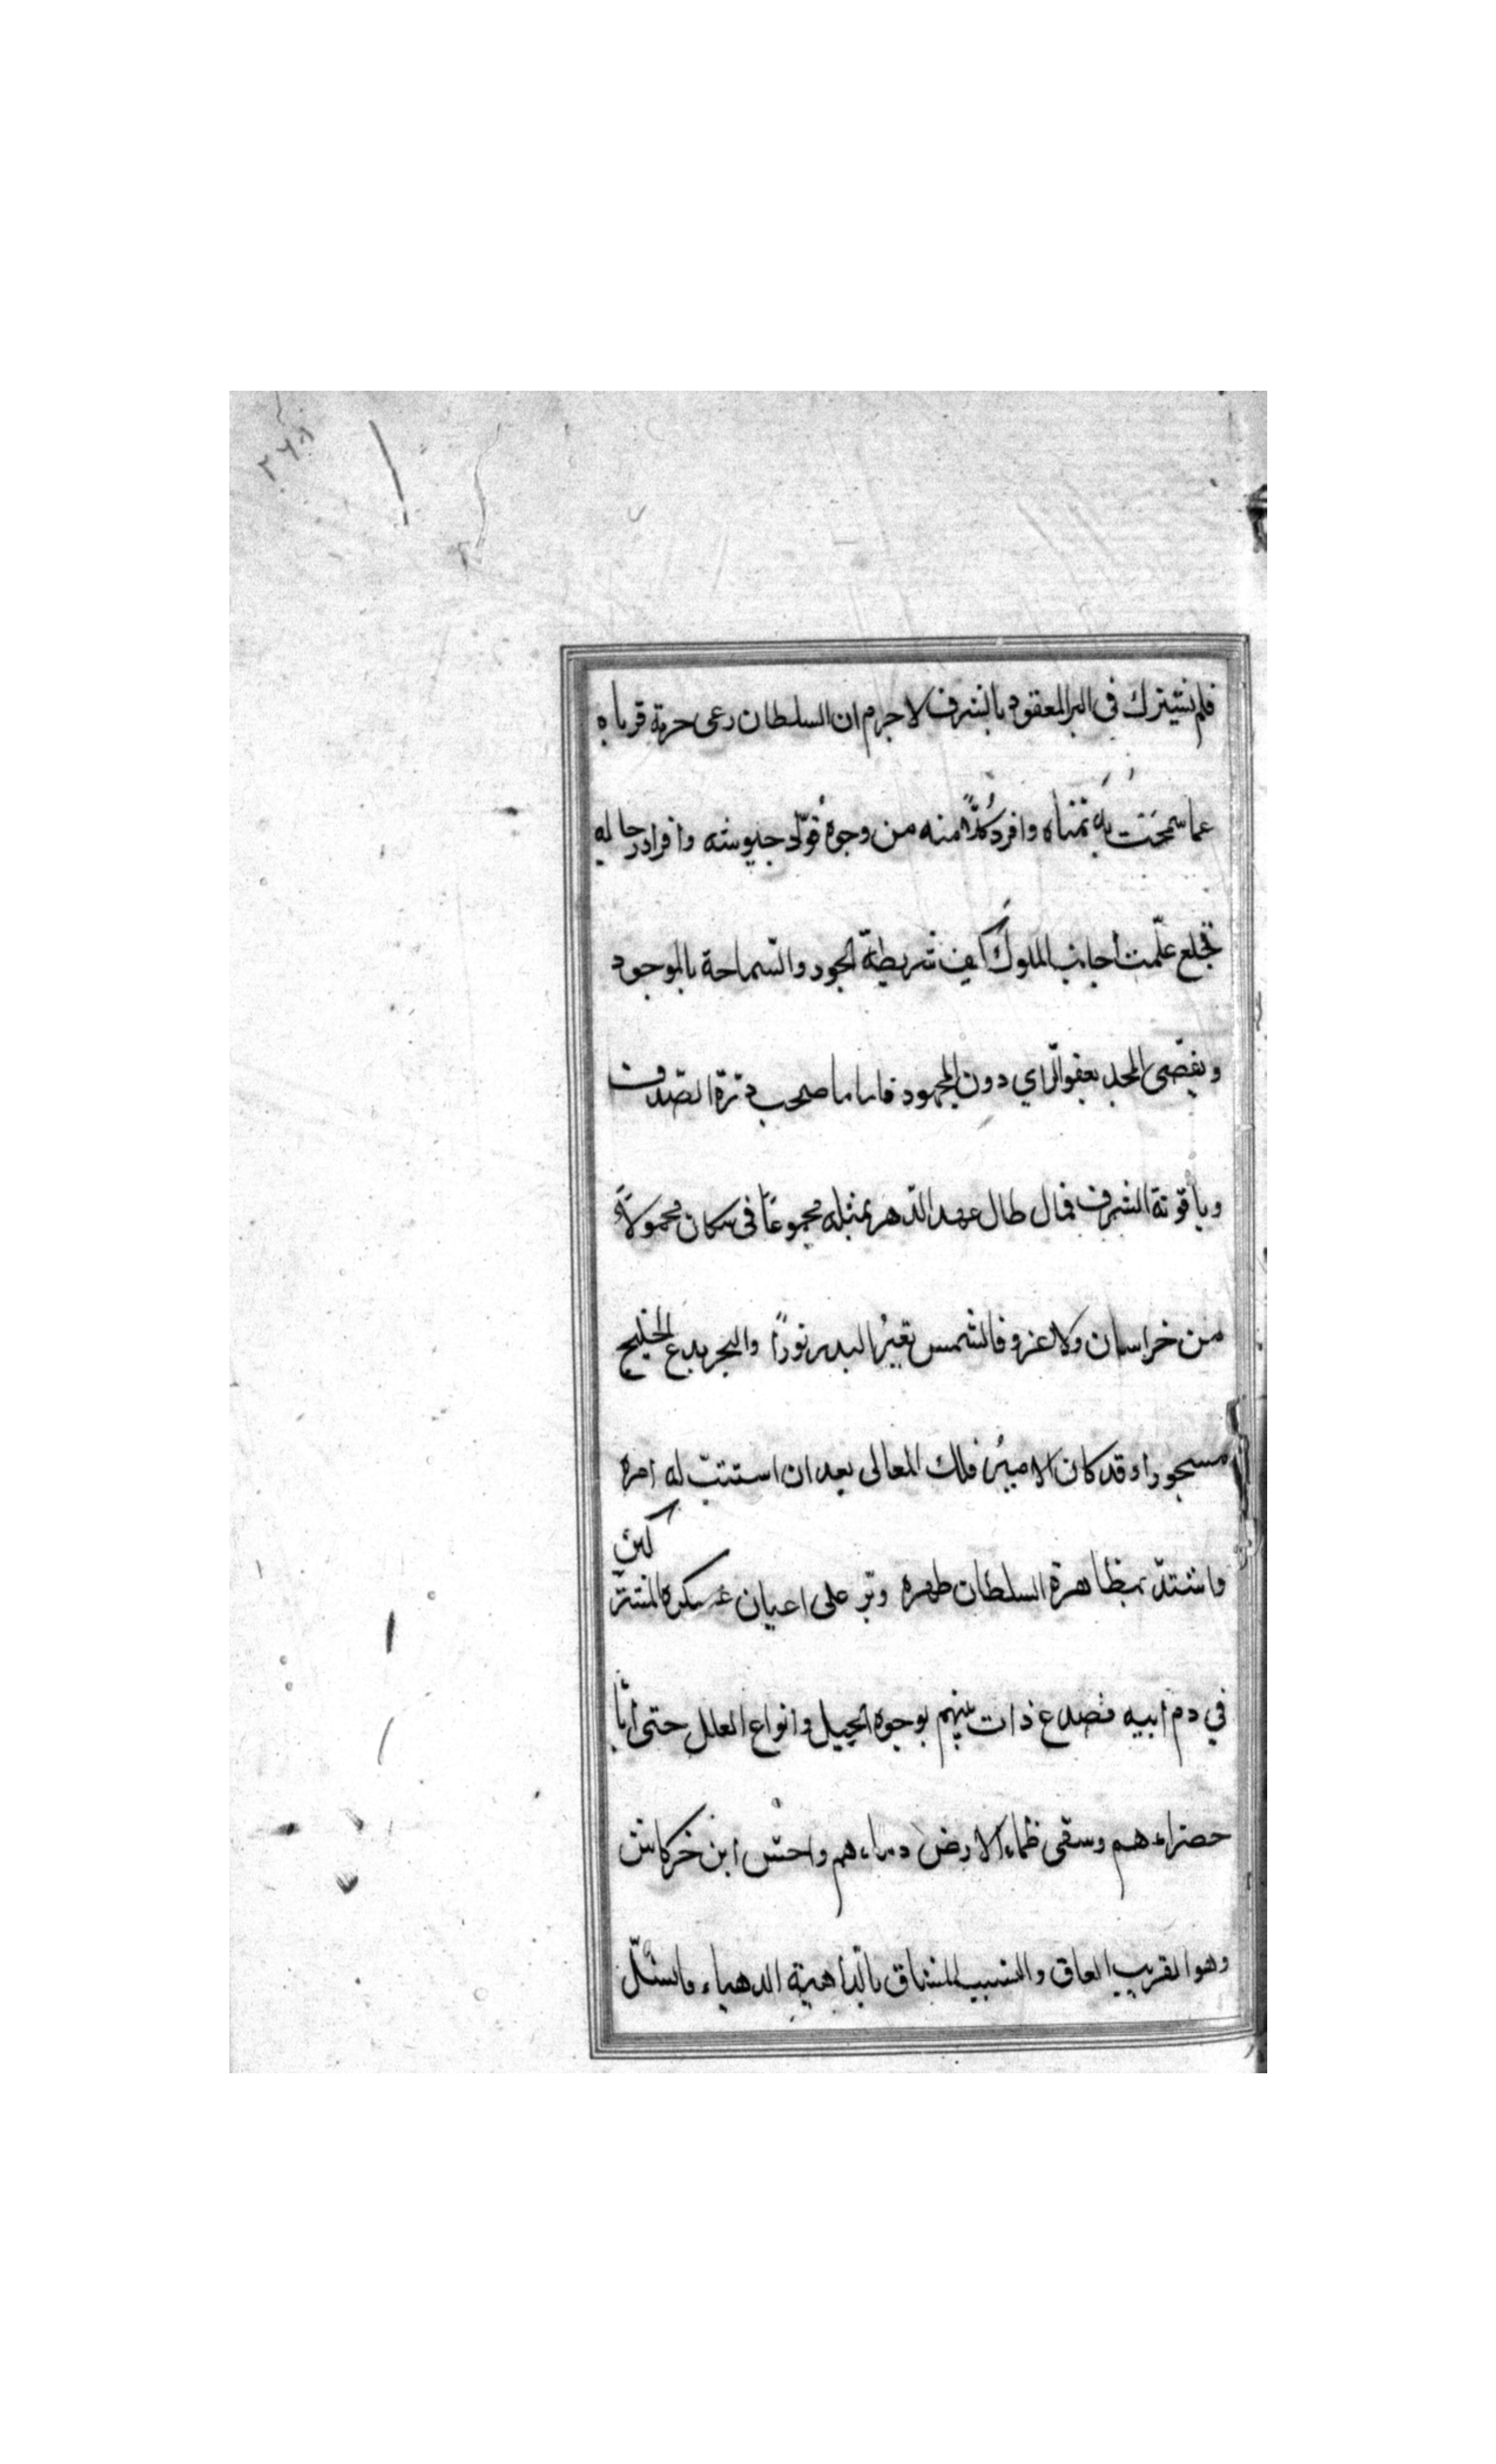 ٢٦٨
فلم نشترك فى البر المعقود بالشرف لاجرم ان السلطان رعى حرمة قرباه
عما سمحت به تمناه وافرد كلّا منه من وجوه قوّاد جيوشه وافراد رجاله
بخلع علّمت اجانب الملوك كيف شريطة الجود والسّماحة بالموجود
ويقصّى المجد بعفو الرّاي دون المجهود فاما ما صحب درّة الصّدف
وياقوتة الشرف فمال طال عهد الدّهر بمثله مجموعًا فى مكان محمولًا
من خراسان ولا غرو فالشمس تعيرُ البدر نورًا والبحر يدع الخليج
مسجورا وقد كان الاميرُ فلك المعالى بعد ان استتبّ له امره
واشتدّ بمظاهرة السلطان ظهره وتر على اعيان عسكره المشتركين
في دم ابيه فصدع ذات بينهم بوجوه الحيل وانواع العلل حتى اباد
خضراءهم وسقى ظماء الارض دماءهم واحسّ ابن خركاش
وهو القريب العاق والنسيب المشاق بالدّاهية الدهياء فانسلّ